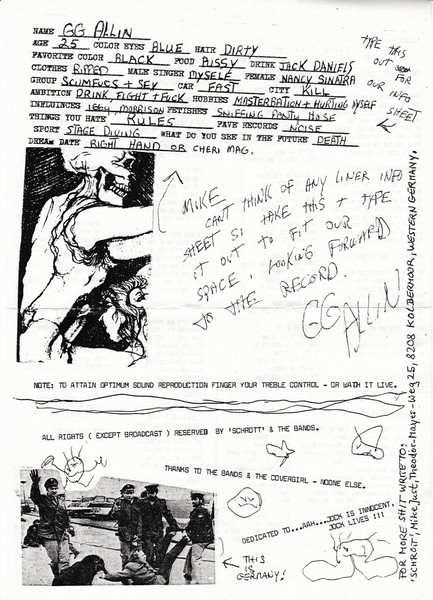 NAME GG ALLIN
AGE 25 COLOR EYES BLUE HAIR DIRTY
FAVORITE COLOR BLACK FOOD PUSSY DRINK JACK DANIELS
CLOTHES RIPPED MALE SINGER MYSELF FEMALE NANCY SINATRA
GROUP SCUMFUCS + SEY CAR FAST CITY KILL
AMBITION DRINK, FIGHT + FUCK HOBBIES MASTERBATION + HURTING MYSELF
INFLUINCES IGGY, MORRISON FETISHES SNIFFING PANTY HOSE
THINGS YOU HATE RULES FAVE RECORDS NOISE
SPORT STAGE DIVING WHAT DO YOU SEE IN THE FUTURE DEATH
DREAM DATE RIGHT HAND OR CHERI MAG.
TYPE THIS
OUT FOR
OUR INFO
SHEET
MIKE
CANT THINK OF ANY LINER INFO
SHEET SO TAKE THIS + TYPE
IT OUT TO FIT OUR
SPACE, LOOKING FORWARD
TO THE RECORD.
GG ALLIN
NOTE: TO ATTAIN OPTIMUM SOUND REPRODUCTION FINGER YOUR TREBLE CONTROL - OR WATCH IT LIVE.
ALL RIGHTS ( EXCEPT BROADCAST ) RESERVED BY 'SCHROTT' & THE BANDS.
THANKS TO THE BANDS & THE COVERGIRL - NOONE ELSE.
DEDICATED TO...AAH...JOCK IS INNOCENT.
JOCK LIVES !!!
THIS
IS
GERMANY!
FOR MORE SHIT WRITE TO:
'SCHROTT', Mike Just, Theodor-Mayer-Weg 25, 8208 KOLBERMOOR, WESTERN GERMANY.